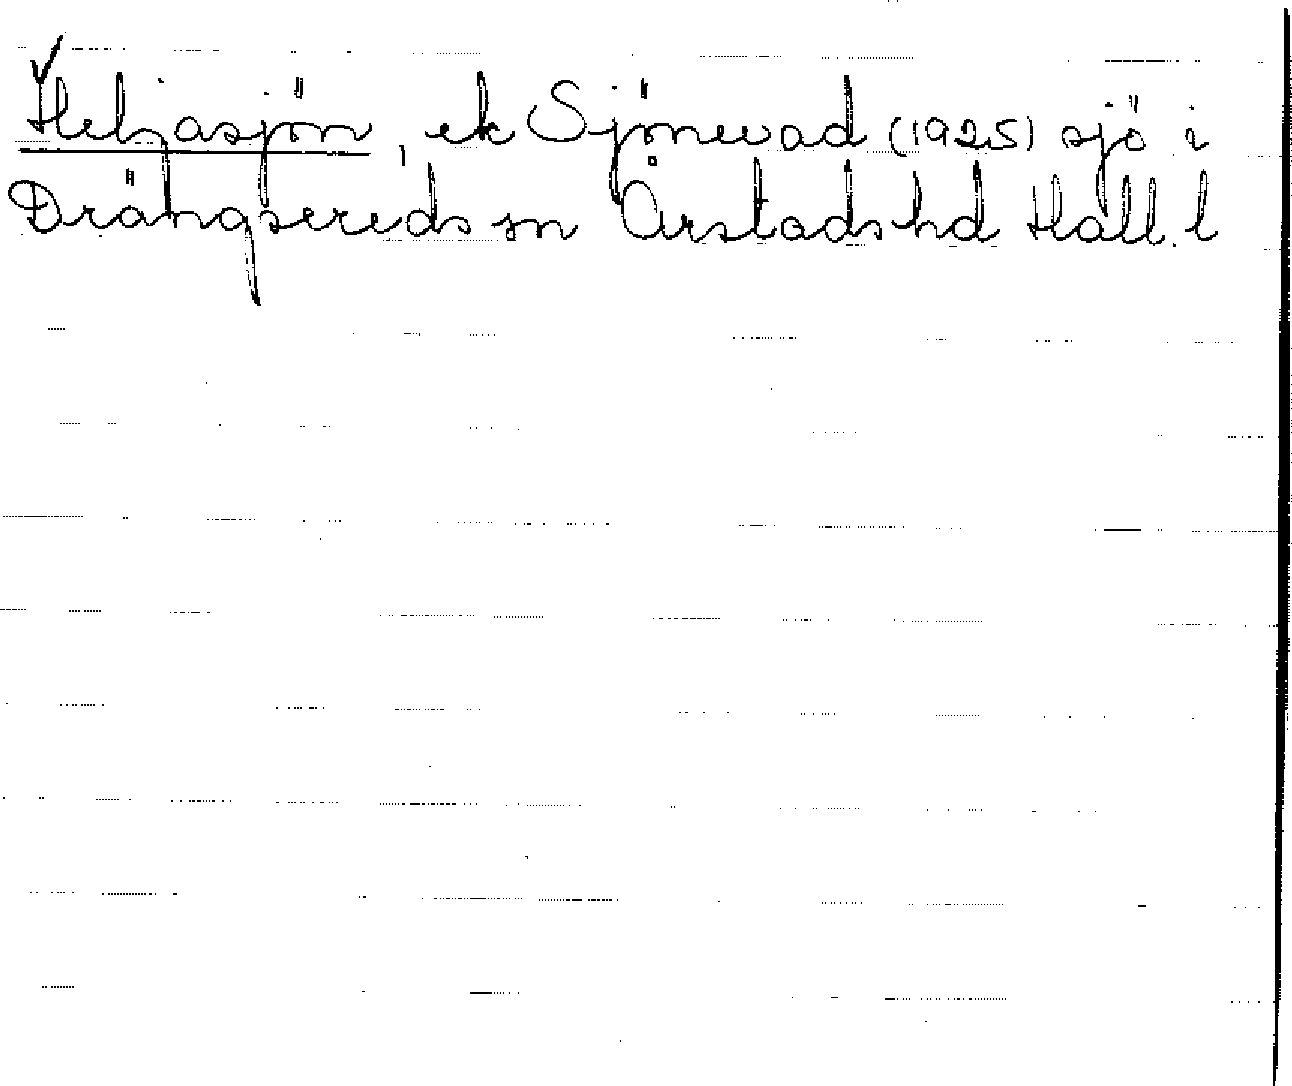 Heljasjön, ek Sjönevad (1925) sjö i
Drängsereds sn Årstads hd Hall. l